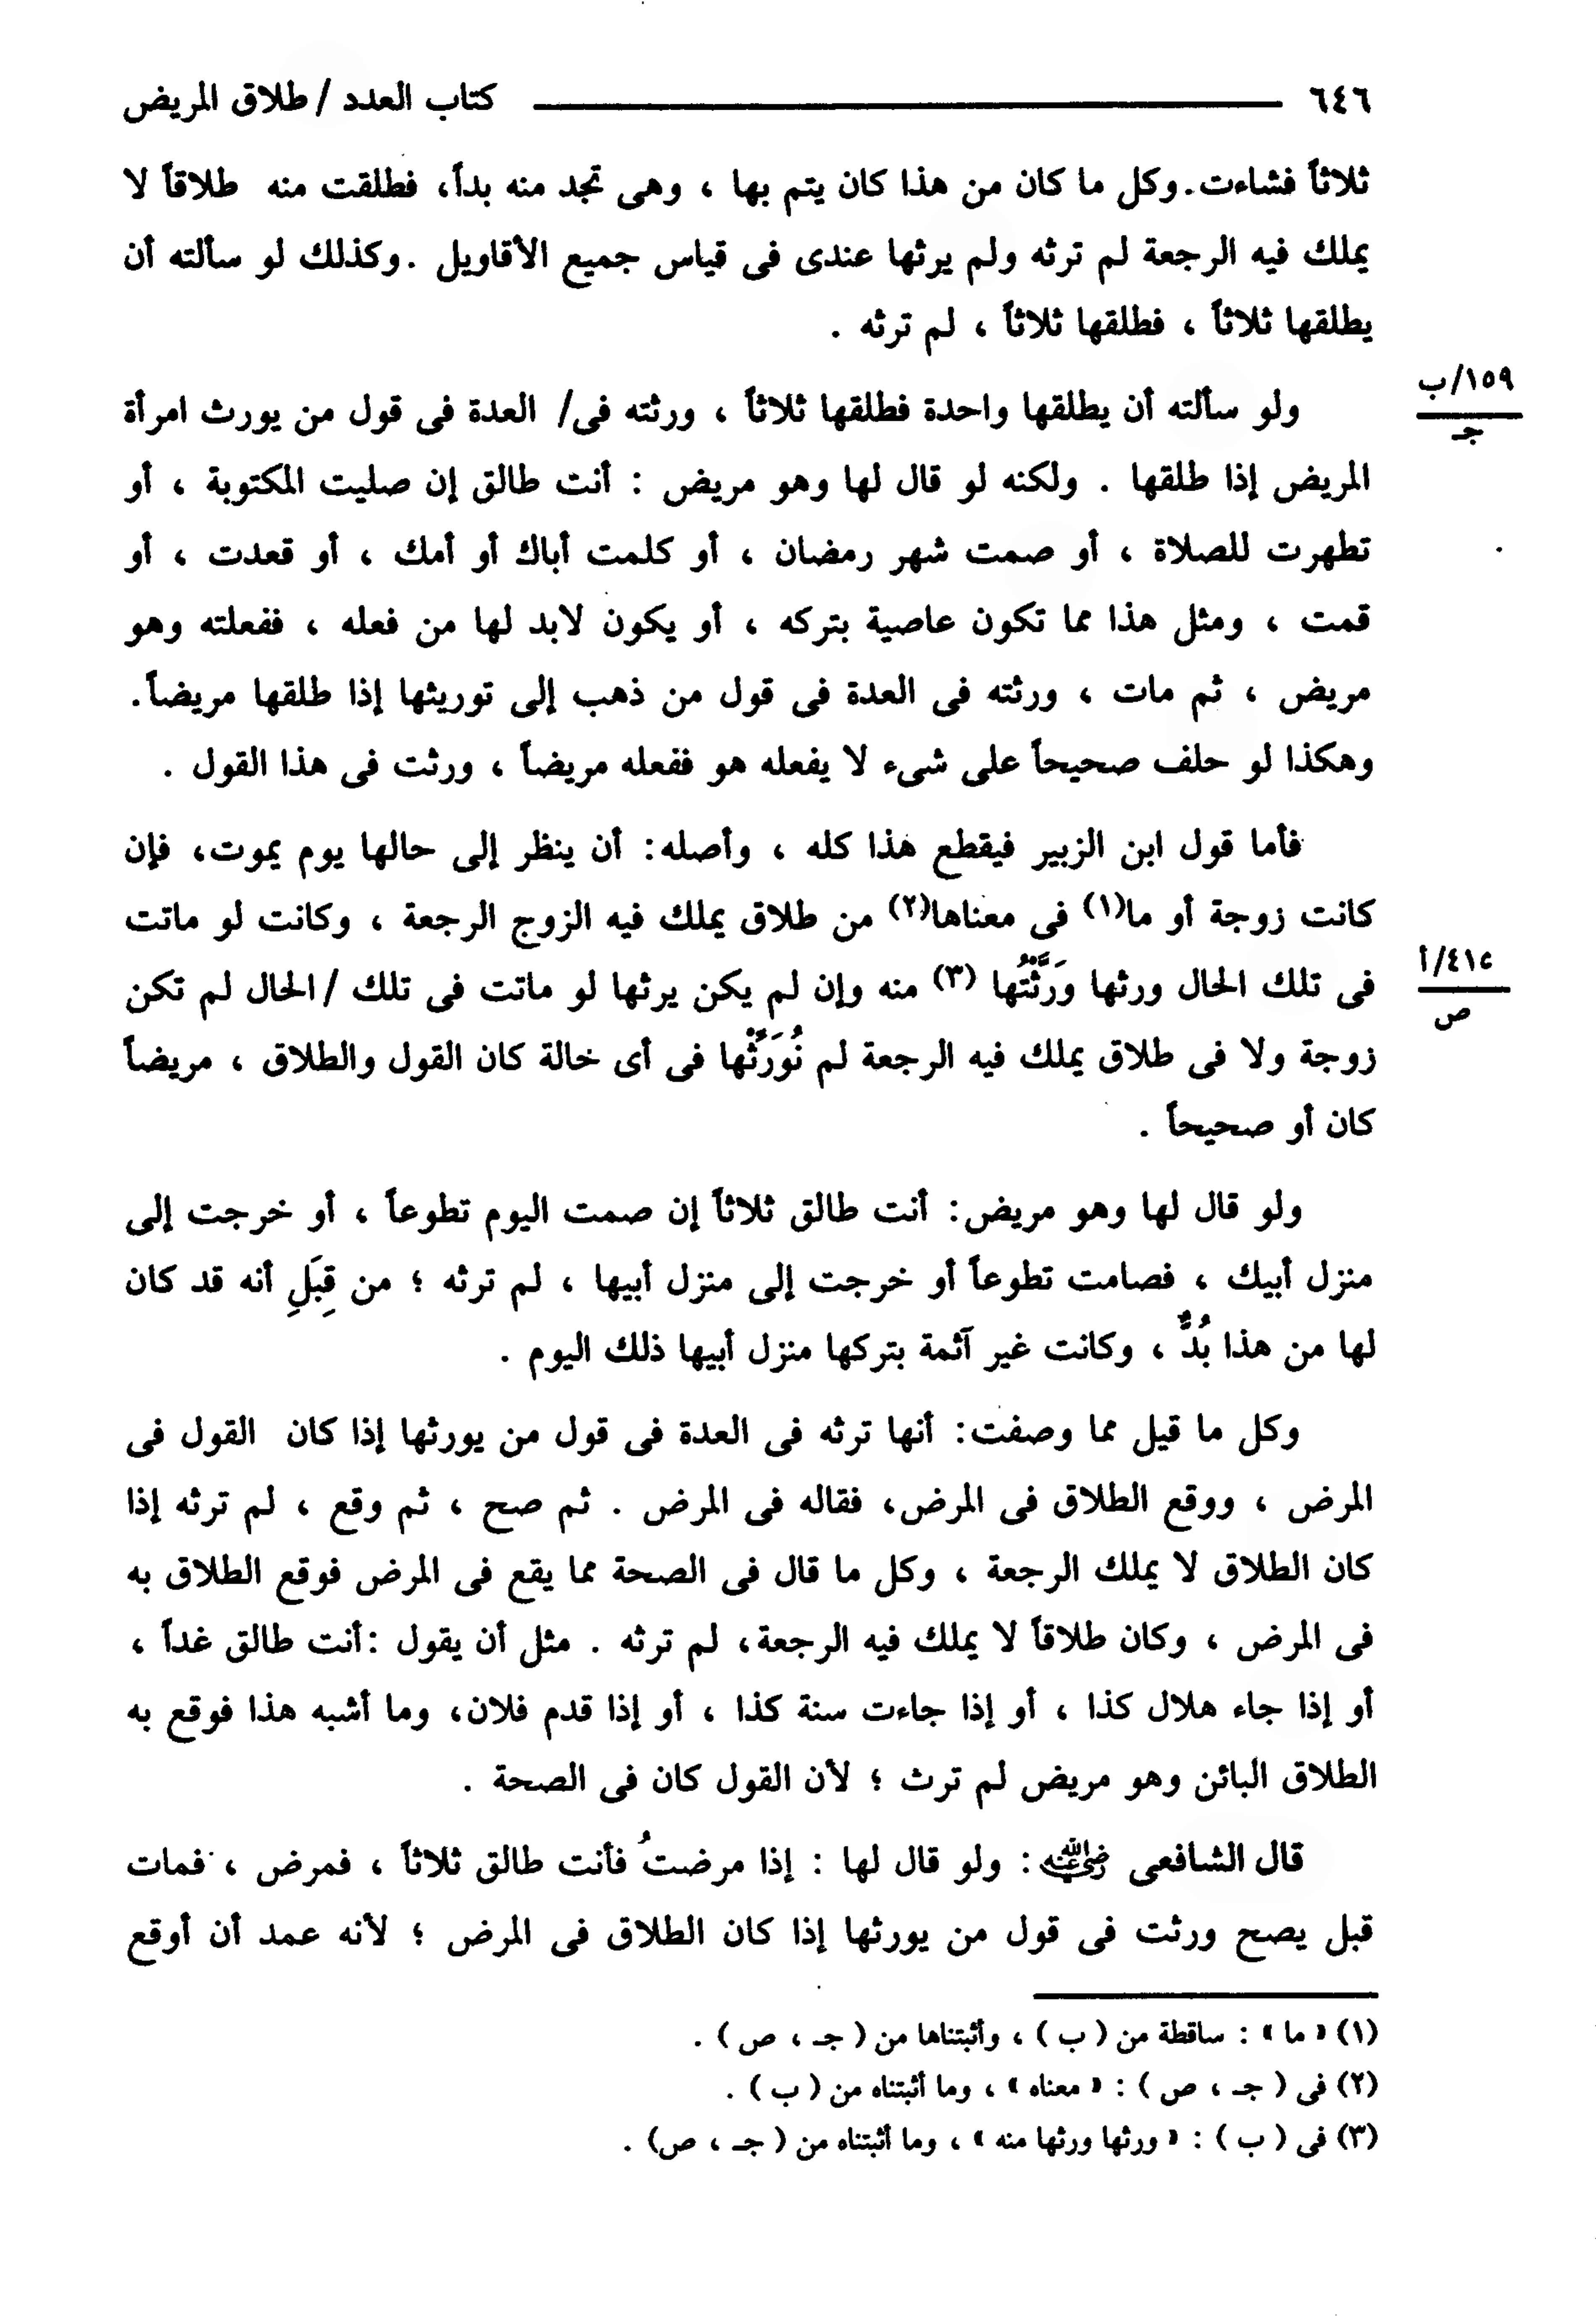 ٦٤٦ كتاب العدد / طلاق المريض
ثلاثاً فشاءت. وكل ما كان من هذا كان يتم بها ، وهى تجد منه بداً، فطلقت منه طلاقاً لا
يملك فيه الرجعة لم ترثه ولم يرثها عندى فى قياس جميع الأقاويل . وكذلك لو سألته أن
يطلقها ثلاثاً ، فطلقها ثلاثاً ، لم ترثه .
١٥٩/ب
جـ
ولو سألته أن يطلقها واحدة فطلقها ثلاثاً ، ورثته فى/ العدة فى قول من يورث امرأة
المريض إذا طلقها . ولكنه لو قال لها وهو مريض : أنت طالق إن صليت المكتوبة ، أو
تطهرت للصلاة ، أو صمت شهر رمضان ، أو كلمت أباك أو أمك ، أو قعدت ، أو
قمت ، ومثل هذا مما تكون عاصية بتركه ، أو يكون لابد لها من فعله ، ففعلته وهو
مريض ، ثم مات ، ورثته فى العدة فى قول من ذهب إلى توريثها إذا طلقها مريضاً.
وهكذا لو حلف صحيحاً على شىء لا يفعله هو ففعله مريضاً ، ورثت فى هذا القول .
فأما قول ابن الزبير فيقطع هذا كله ، وأصله: أن ينظر إلى حالها يوم يموت، فإن
كانت زوجة أو ما(١) فى معناها(٢) من طلاق يملك فيه الزوج الرجعة ، وكانت لو ماتت
٤١٥/أ
ص
فى تلك الحال ورثها وَرَّثْتُها (٣) منه وإن لم يكن يرثها لو ماتت فى تلك /الحال لم تكن
زوجة ولا فى طلاق يملك فيه الرجعة لم نُوَرِّثْها فى أى خالة كان القول والطلاق ، مريضاً
كان أو صحيحاً .
ولو قال لها وهو مريض: أنت طالق ثلاثاً إن صمت اليوم تطوعاً ، أو خرجت إلى
منزل أبيك ، فصامت تطوعاً أو خرجت إلى منزل أبيها ، لم ترثه ؛ من قِبَلِ أنه قد كان
لها من هذا بُدٌّ ، وكانت غير آثمة بتركها منزل أبيها ذلك اليوم .
وكل ما قيل مما وصفت: أنها ترثه فى العدة فى قول من يورثها إذا كان القول فى
المرض ، ووقع الطلاق فى المرض، فقاله فى المرض . ثم صح ، ثم وقع ، لم ترثه إذا
كان الطلاق لا يملك الرجعة ، وكل ما قال فى الصحة مما يقع فى المرض فوقع الطلاق به
فى المرض ، وكان طلاقاً لا يملك فيه الرجعة، لم ترثه . مثل أن يقول :أنت طالق غداً ،
أو إذا جاء هلال كذا ، أو إذا جاءت سنة كذا ، أو إذا قدم فلان، وما أشبه هذا فوقع به
الطلاق البائن وهو مريض لم ترث ؛ لأن القول كان فى الصحة .
قال الشافعى رضي الله عنه : ولو قال لها : إذا مرضتُ فأنت طالق ثلاثاً ، فمرض ، فمات
قبل يصح ورثت فى قول من يورثها إذا كان الطلاق فى المرض ؛ لأنه عمد أن أوقع
(١) « ما » : ساقطة من ( ب ) ، وأثبتناها من ( جـ ، ص ) .
(٢) فى ( جـ ، ص ) : « معناه » ، وما أثبتناه من ( ب ) .
(٣) فى ( ب ) : « ورثها ورثها منه » ، وما أثبتناه من ( جـ ، ص) .